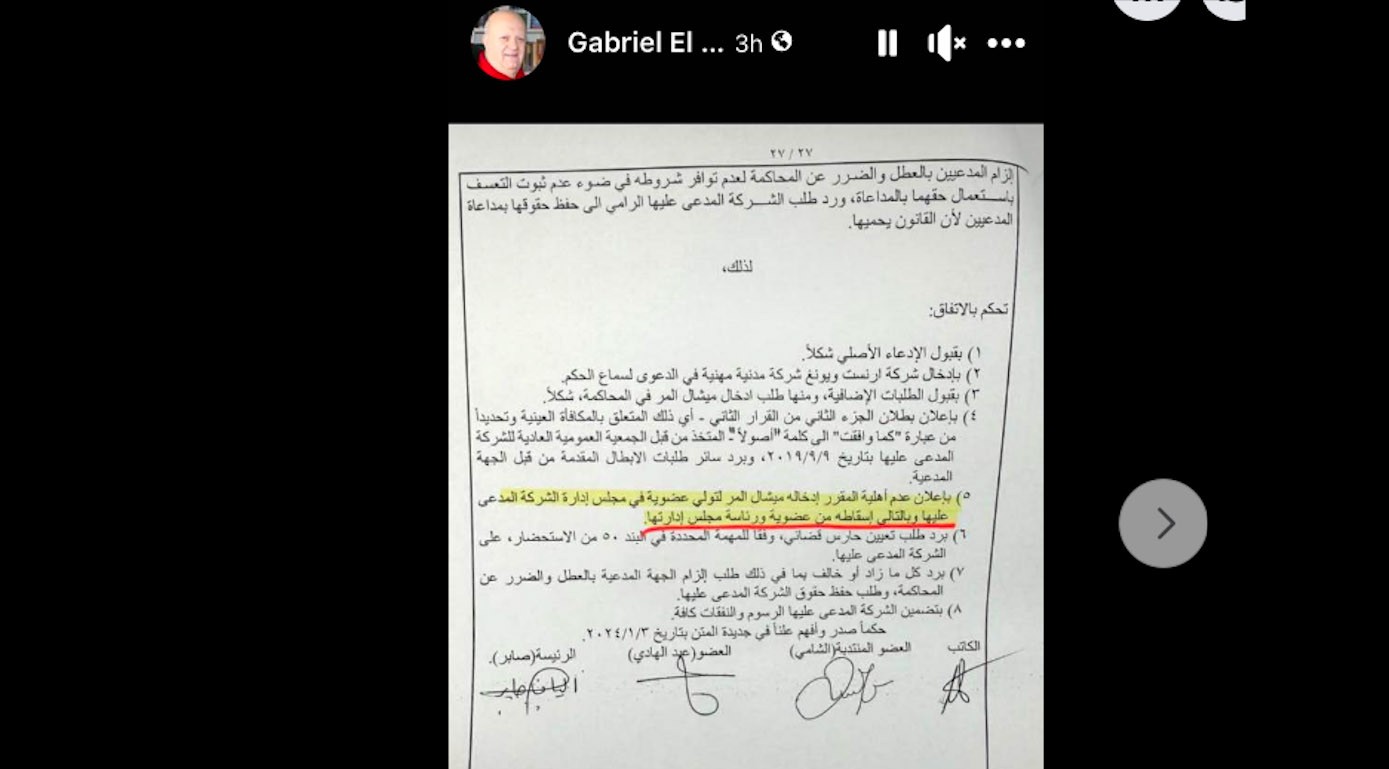 Gabriel El ... 3h
٢٧ / ٢٧
إلزام المدعيين بالعطل والضرر عن المحاكمة لعدم توافر شروطه في ضوء عدم ثبوت التعسف
باستعمال حقهما بالمداعاة، ورد طلب الشركة المدعى عليها الرامي الى حفظ حقوقها بمداعاة
المدعيين لأن القانون يحميها.
لذلك،
تحكم بالاتفاق:
١) بقبول الإدعاء الأصلي شكلاً.
٢) بإدخال شركة ارنست ويونغ شركة مدنية مهنية في الدعوى لسماع الحكم.
٣) بقبول الطلبات الإضافية، ومنها طلب ادخال ميشال المر في المحاكمة، شكلاً.
٤) بإعلان بطلان الجزء الثاني من القرار الثاني - أي ذلك المتعلق بالمكافأة العينية وتحديداً
من عبارة "كما وافقت" الى كلمة "أصولاً"- المتخذ من قبل الجمعية العمومية العادية للشركة
المدعى عليها بتاريخ ٢٠١٩/٩/٩، وبرد سائر طلبات الابطال المقدمة من قبل الجهة
المدعية.
٥) بإعلان عدم أهلية المقرر إدخاله ميشال المر لتولي عضوية في مجلس إدارة الشركة المدعى
عليها وبالتالي إسقاطه من عضوية ورئاسة مجلس إدارتها.
٦) برد طلب تعيين حارس قضائي، وفقاً للمهمة المحددة في البند ٥٠ من الاستحضار، على
الشركة المدعى عليها.
٧) برد كل ما زاد أو خالف بما في ذلك طلب إلزام الجهة المدعية بالعطل والضرر عن
المحاكمة، وطلب حفظ حقوق الشركة المدعى عليها.
٨) بتضمين الشركة المدعى عليها الرسوم والنفقات كافة.
حكماً صدر وأفهم علناً في جديدة المتن بتاريخ ٢٠٢٤/١/٣.
الكاتب العضو المنتدبة(الشامي) العضو(عبد الهادي) الرئيسة(صابر).